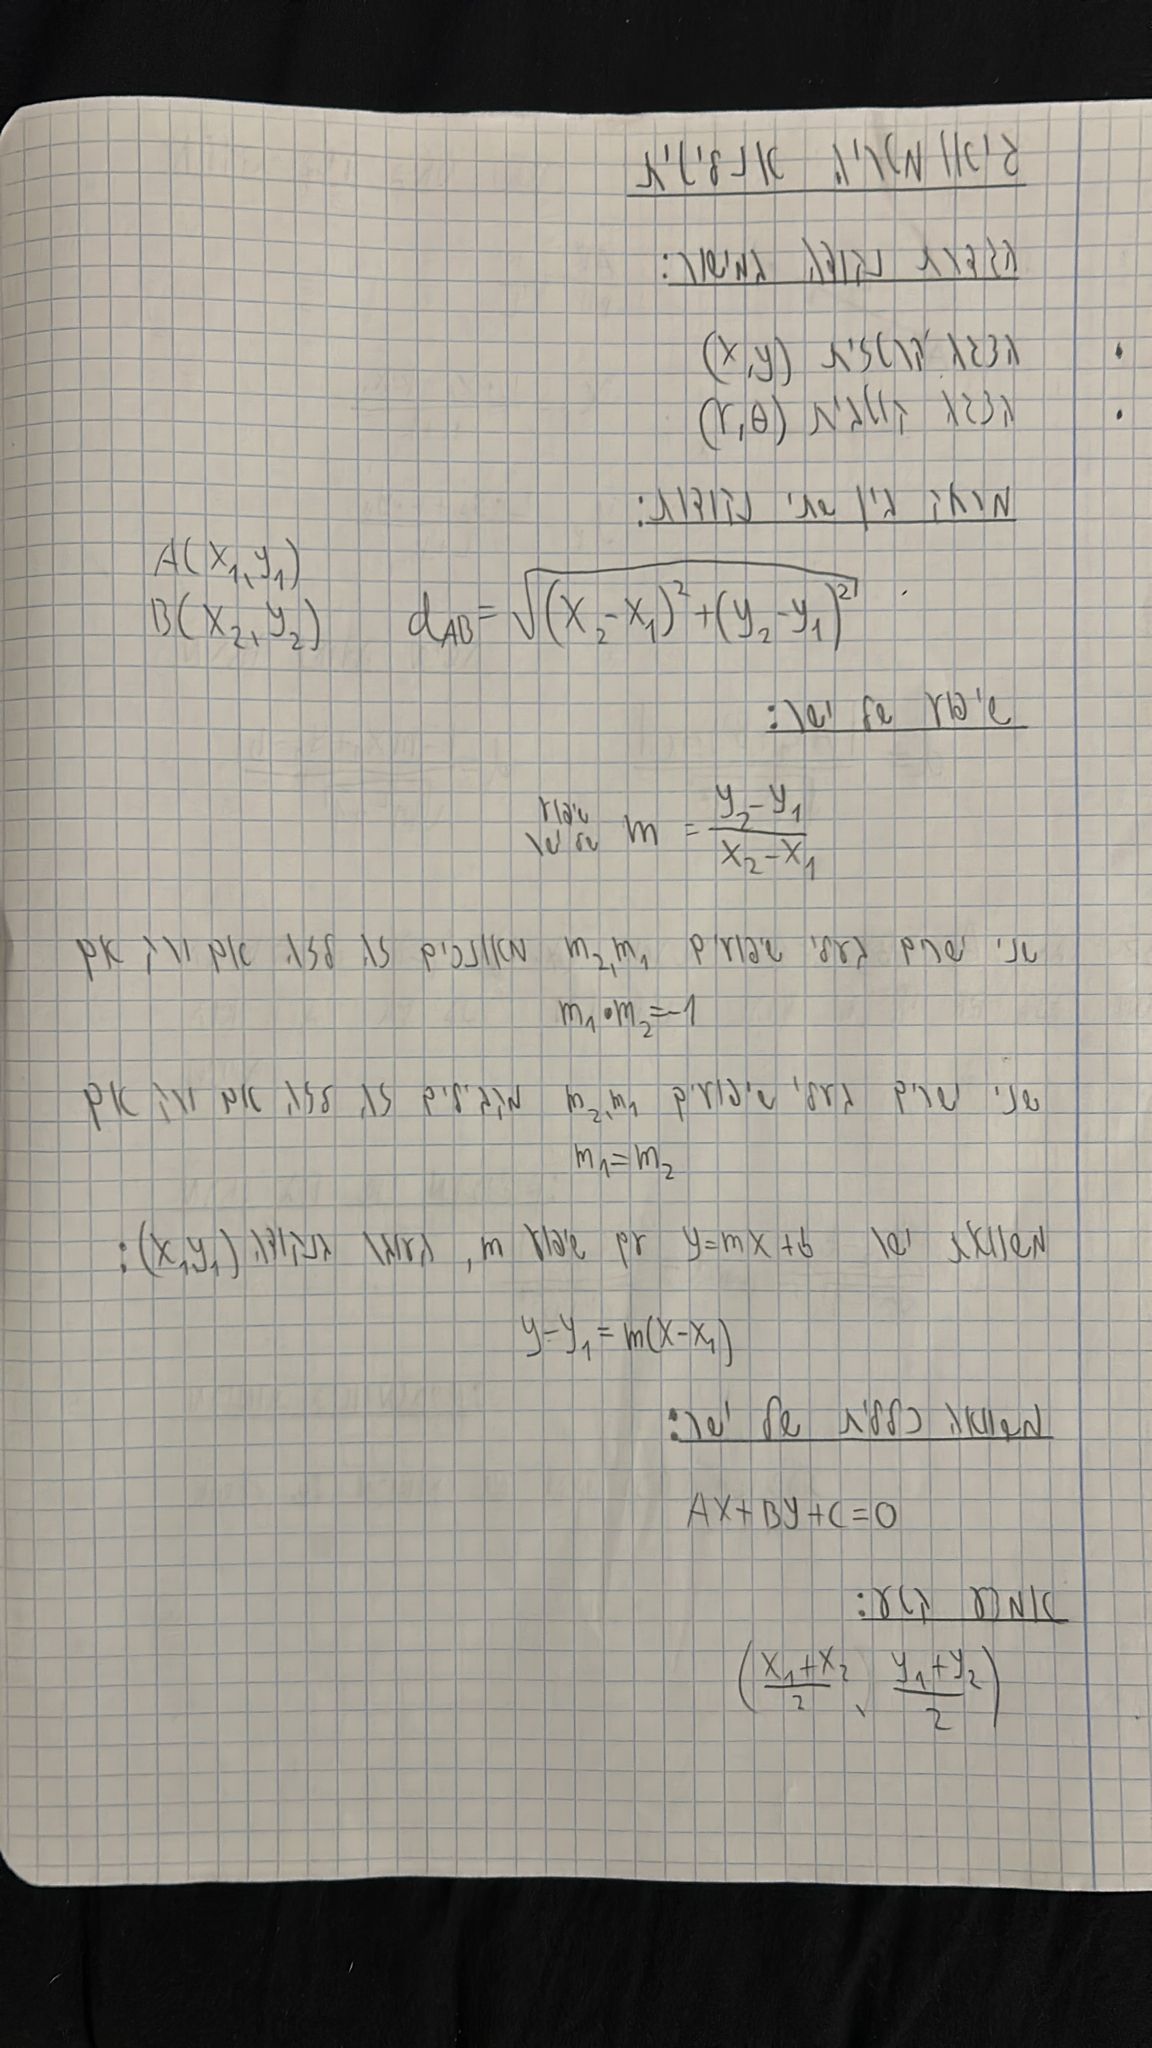 גיאומטריה אנליטית
הצגת נקודה במישור:
• הצגה קרטזית (x,y)
• הצגה (r,θ)
מרחק בין שתי נקודות:
A(x₁,y₁)
B(x₂,y₂) d_AB=√((x₂-x₁)²+(y₂-y₁)²)
שיפוע של ישר:
שיפוע של ישר m = (y₂-y₁)/(x₂-x₁)
שני ישרים בעלי שיפועים m₁,m₂ מאונכים זה לזה אם ורק אם
m₁•m₂=-1
שני ישרים בעלי שיפועים m₁,m₂ מקבילים זה לזה אם ורק אם
m₁=m₂
משוואת ישר y=mx+b עם שיפוע m, העובר בנקודה (x₁,y₁):
y-y₁=m(x-x₁)
משוואה כללית של ישר:
Ax+By+C=0
אמצע קטע:
((x₁+x₂)/2, (y₁+y₂)/2)